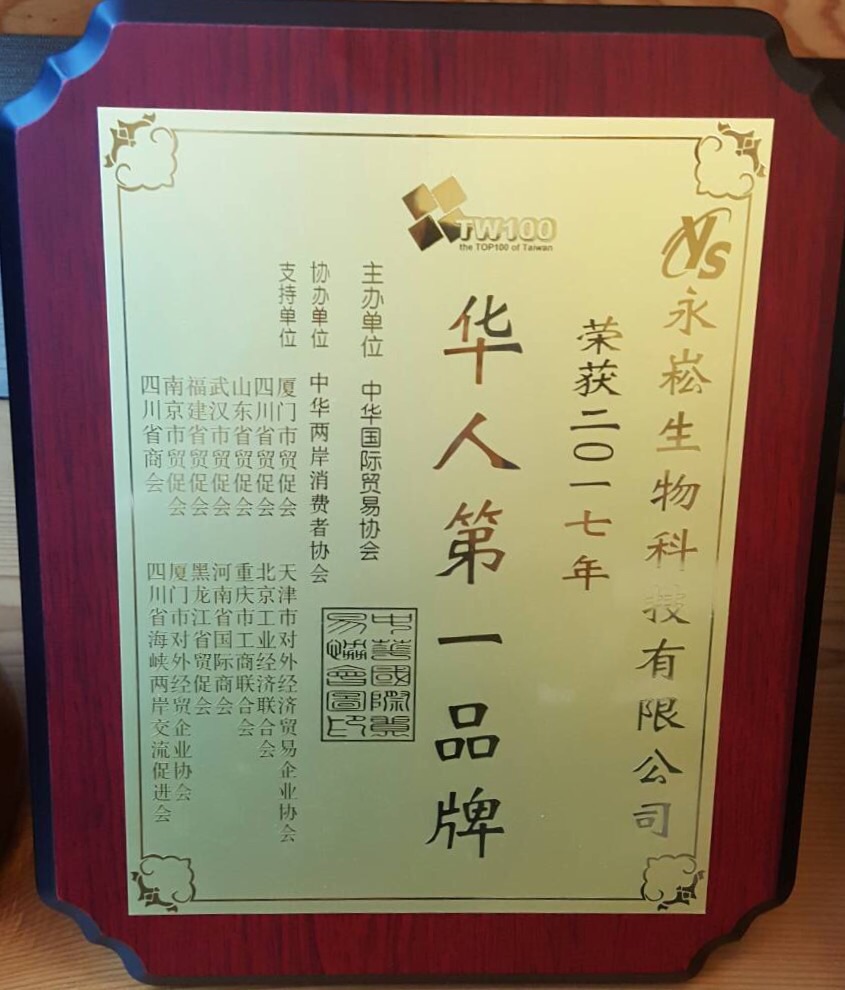 YS
永崧生物科技有限公司
荣获二〇一七年
TW100
the TOP100 of Taiwan
华人第一品牌
主办单位 中华国际贸易协会
协办单位 中华两岸消费者协会
支持单位
厦门市贸促会 天津市对外经济贸易企业协会
四川省贸促会 北京工业经济联合会
山东省贸促会 重庆市工商联合会
武汉市贸促会 河南省国际商会
福建省贸促会 黑龙江省贸促会
南京市贸促会 厦门市对外经贸企业协会
四川省商会 四川省海峡两岸交流促进会
中華國際貿
易協會圖印